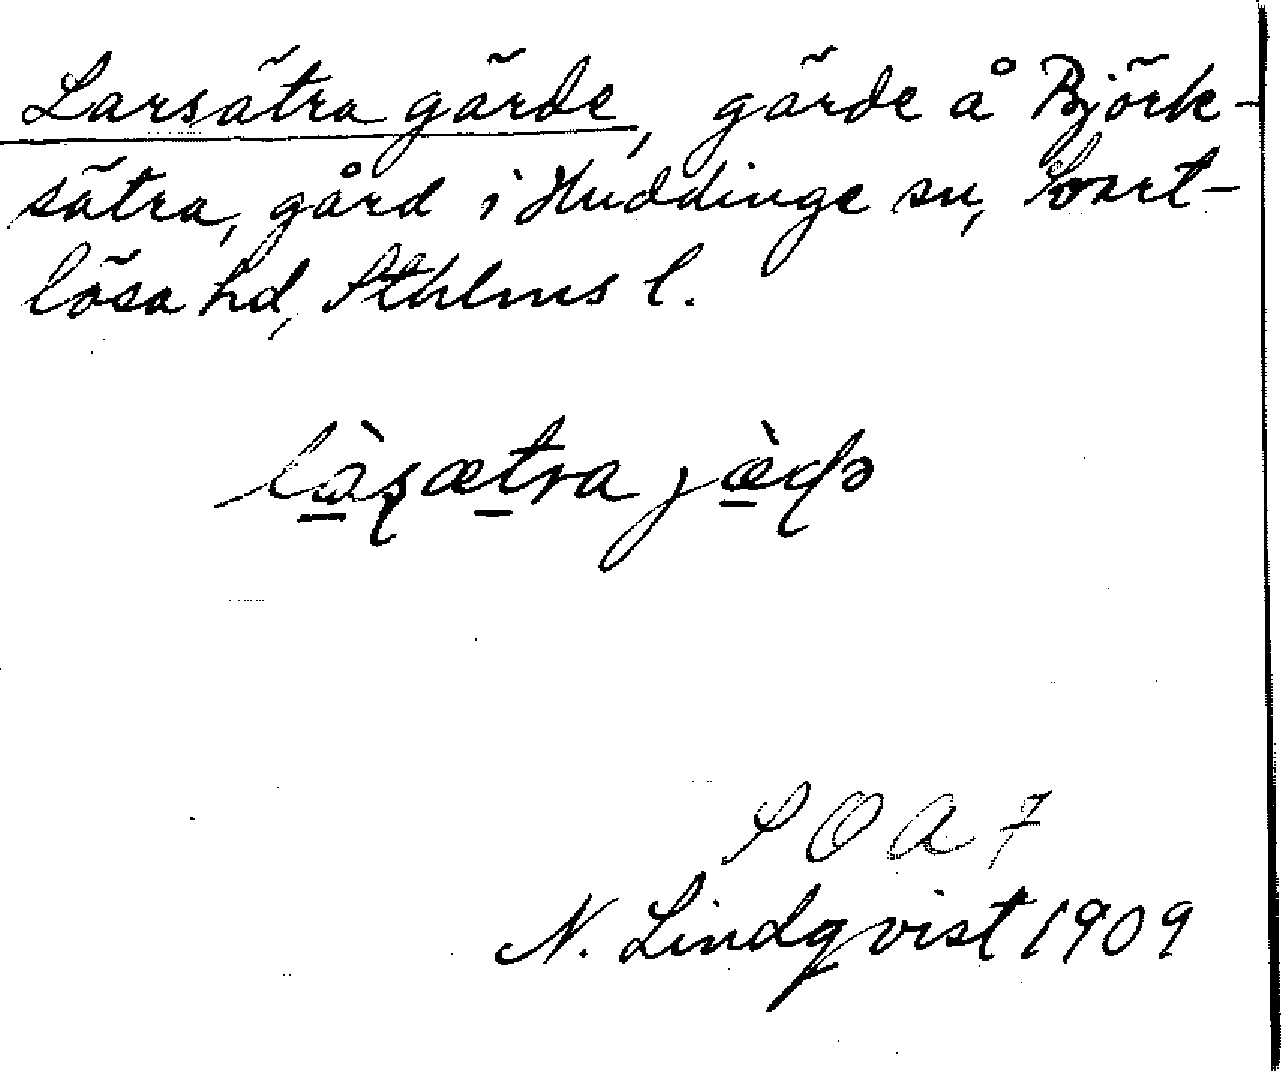 Larsätra gärde, gärde å Björk-
sätra, gård i Huddinge sn, Svart-
lösa hd, Sthlms l.
là̱ʂæt̠ra jæ̠̀ɖə
SOA 7
N. Lindqvist 1909